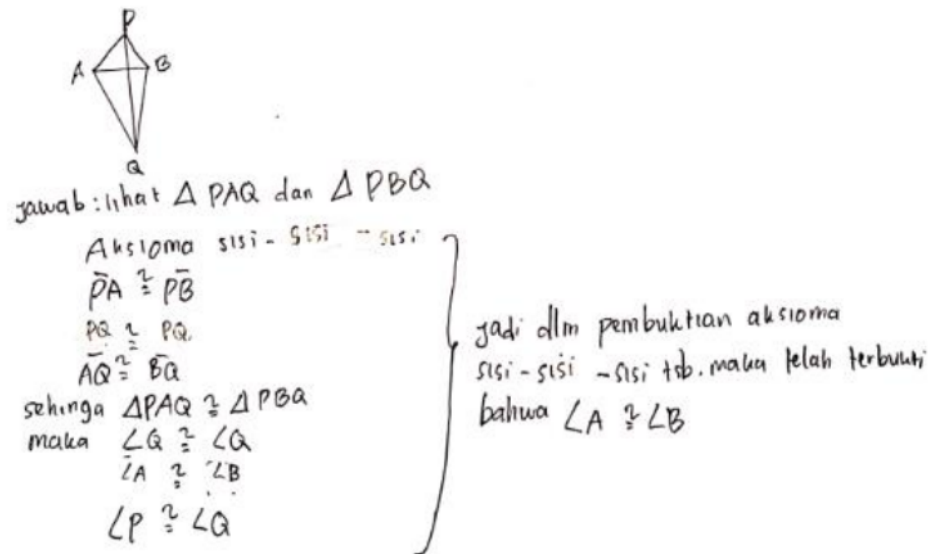 P
A B
Q
jawab : lihat Δ PAQ dan Δ PBQ
Aksioma sisi - sisi - sisi
P̅A ≅ PB̅
PQ ≅ PQ
A̅Q ≅ B̅Q
sehinga ΔPAQ ≅ ΔPBQ
maka ∠Q ≅ ∠Q
∠A ≅ ∠B
∠P ≅ ∠Q
jadi dlm pembuktian aksioma
sisi - sisi - sisi tsb. maka telah terbukti
bahwa ∠A ≅ ∠B